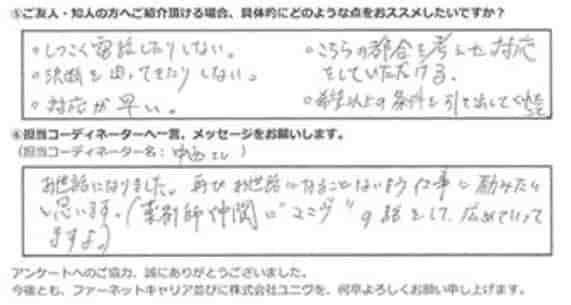 ⑤ご友人・知人の方へご紹介頂ける場合、具体的にどのような点をおススメしたいですか?
○しつこく電話したりしない。
○決断を迫ってきたりしない。
○対応が早い。
○こちらの都合を考えた対応
をしていただける。
○希望以上の条件を引き出してくれた
⑥担当コーディネーターへ一言、メッセージをお願いします。
(担当コーディネーター名: 中西 )
お世話になりました。再びお世話になることないよう仕事に励みたい
と思います。(薬剤師仲間に"ユニヴ"の話をして、広めていって
ますよ。)
アンケートへのご協力、誠にありがとうございました。
今後とも、ファーネットキャリア並びに株式会社ユニヴを、何卒よろしくお願い申し上げます。